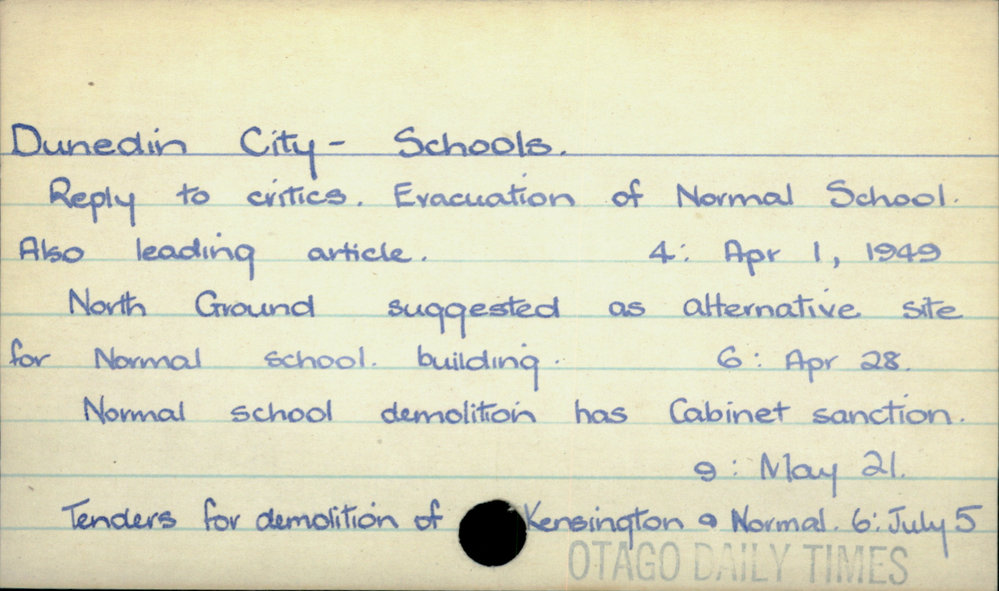 Dunedin City - Schools.
Reply to critics. Evacuation of Normal School.
Also leading article. 4: Apr 1, 1949
North Ground suggested as alternative site
for Normal school. building. 6: Apr 28.
Normal school demolition has Cabinet sanction.
9: May 21.
Tenders for demolition of Kensington & Normal. 6: July 5
OTAGO DAILY TIMES